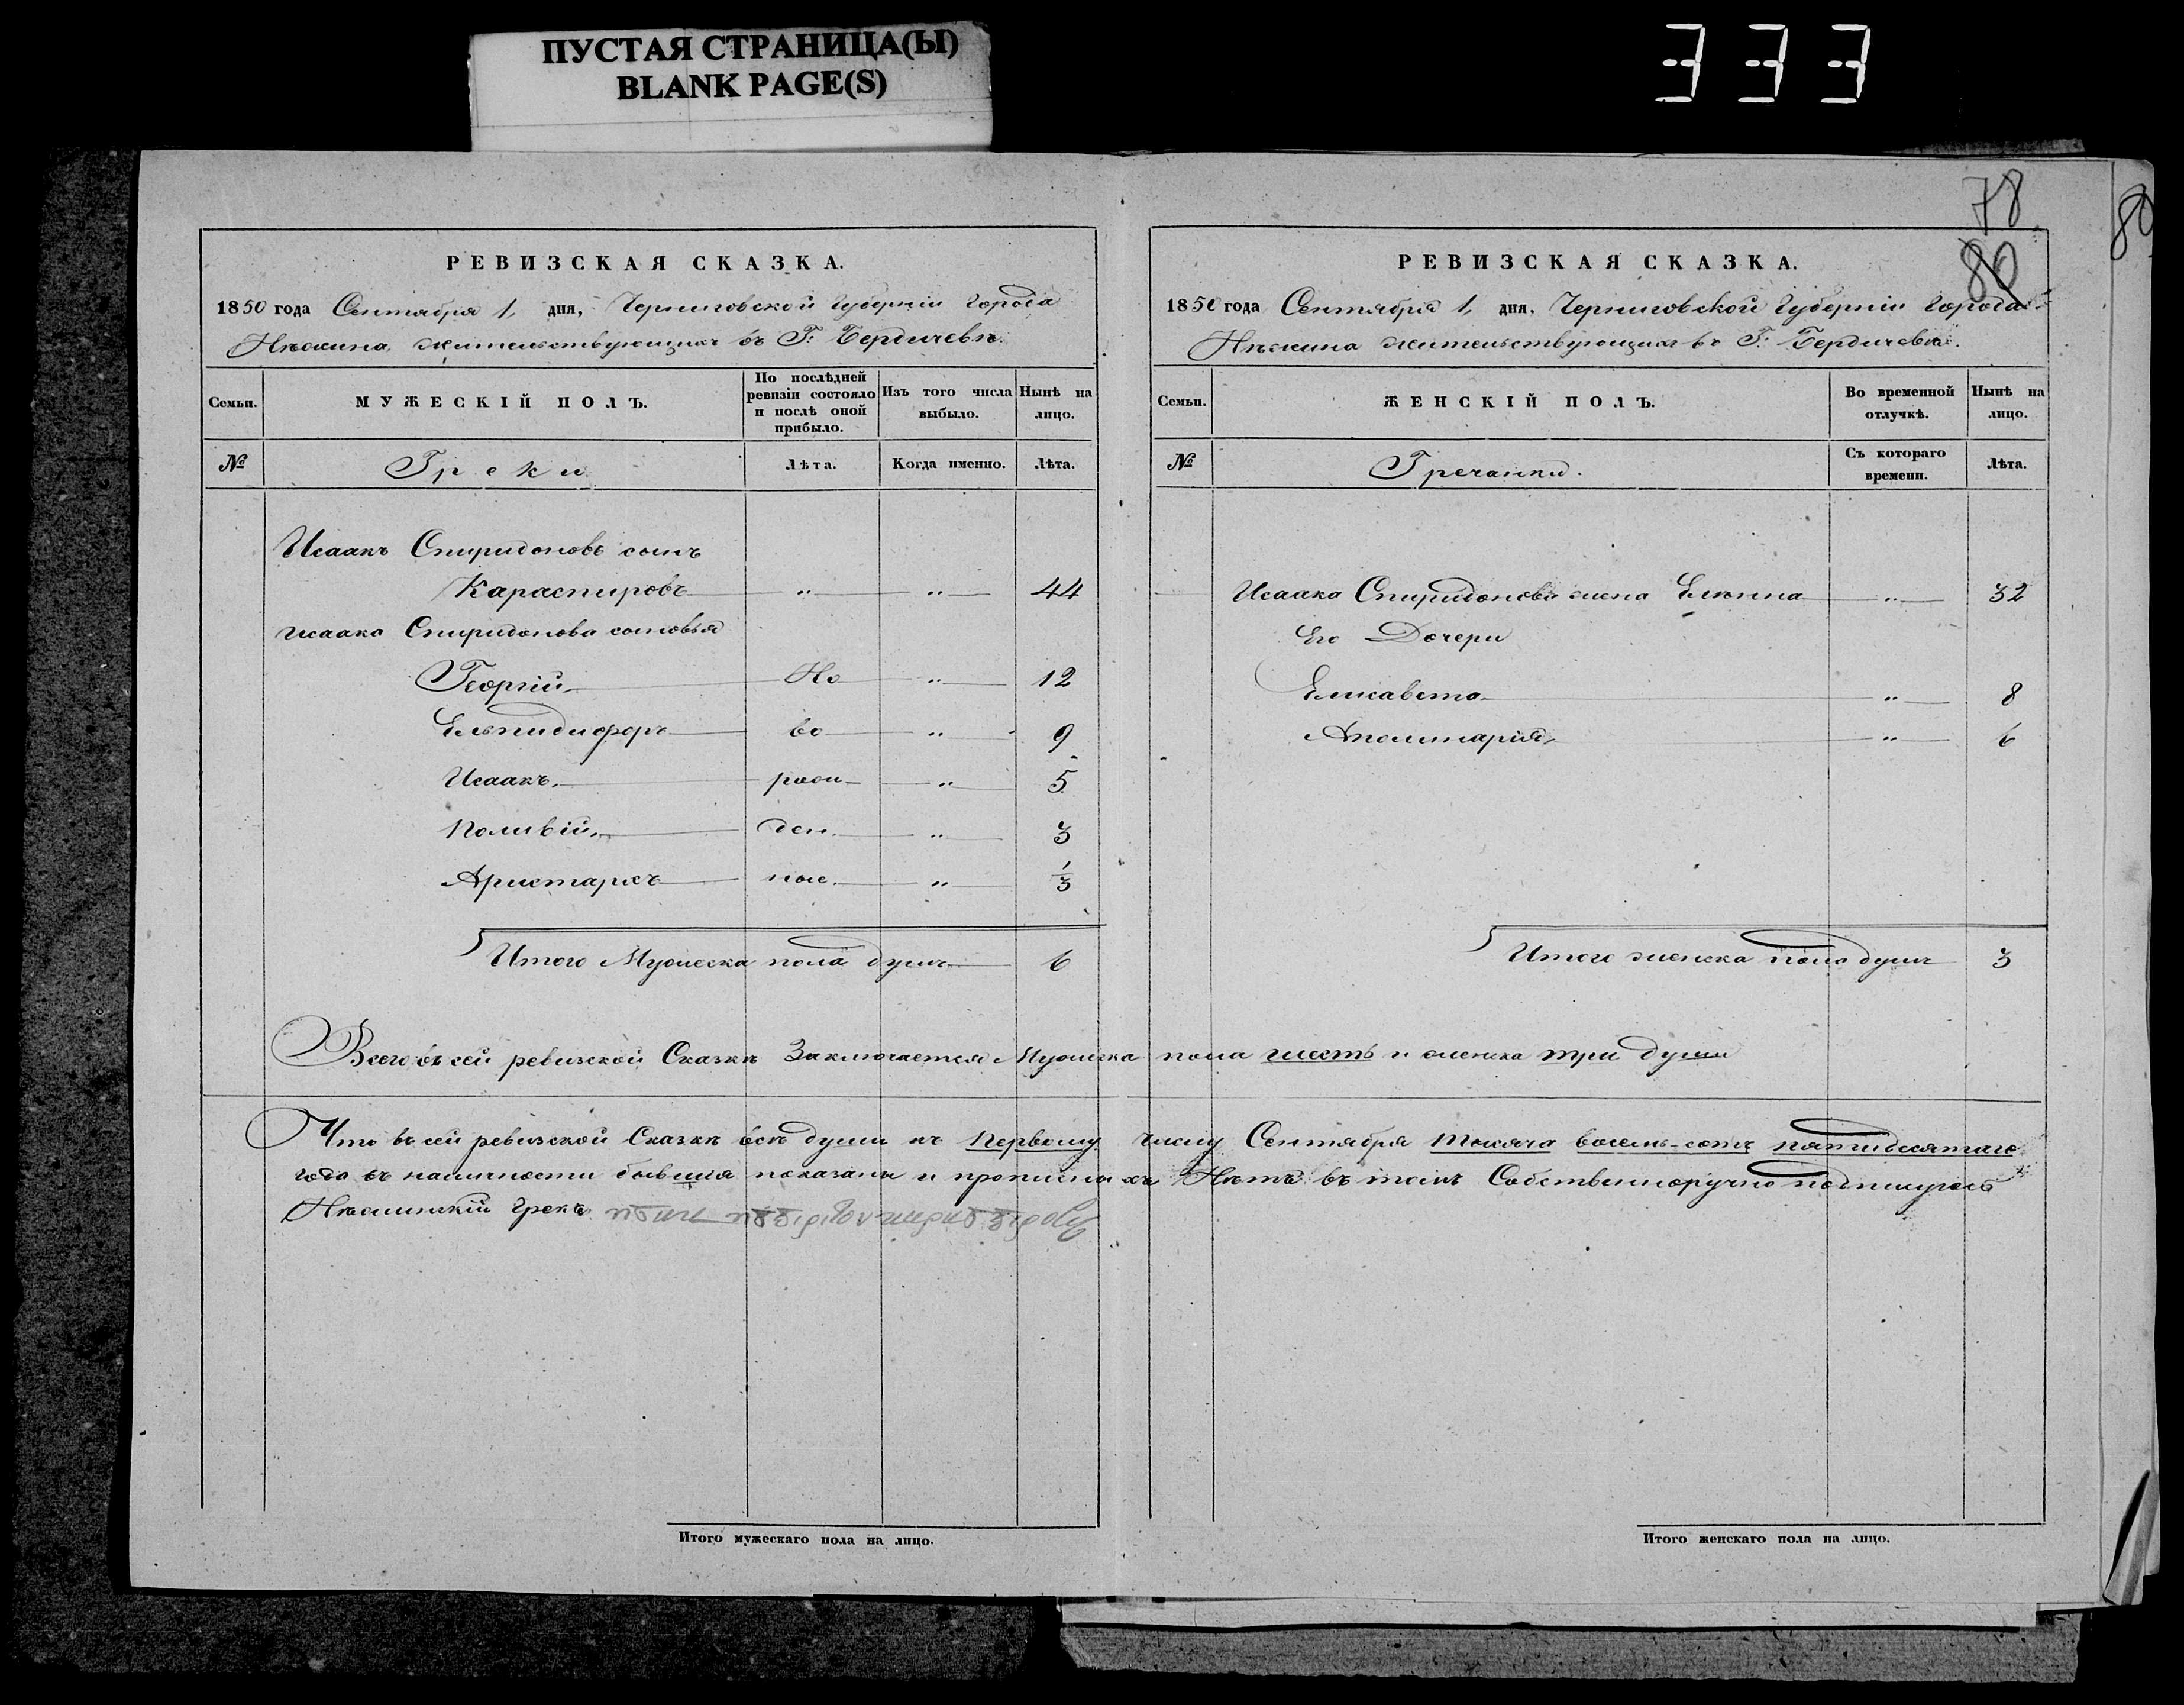 ПУСТАЯ СТРАНИЦА(Ы)
BLANK PAGE(S)
78
80
80
РЕВИЗСКАЯ СКАЗКА.
1850 года Сентября 1, дня, Черниговской Губерніи Города
Нѣжина жительствующихъ въ Г: Бердичевѣ.
Семьи.
МУЖЕСКІЙ ПОЛЪ.
По послѣдней ревизіи состояло и послѣ оной прибыло.
Изъ того числа выбыло.
Нынѣ на лицо.
№
Греки
Лѣта.
Когда именно.
Лѣта.
Исаакъ Спиридоновъ сынъ
Караспировъ " " 44
Исаака Спиридонова сыновья
Георгій Но " 12
Ельпидифоръ во " 9
Исаакъ рож " 5
Поливій ден " 3
Аристархъ ные " 1/3
Итого Мужеска пола душъ 6
РЕВИЗСКАЯ СКАЗКА.
1850 года Сентября 1, дня, Черниговской Губерніи Города
Нѣжина жительствующихъ въ Г: Бердичевѣ.
Семьи.
ЖЕНСКІЙ ПОЛЪ.
Во временной отлучкѣ.
Нынѣ на лицо.
№
Гречанки.
Съ котораго времени.
Лѣта.
Исаака Спиридонова жена Елена " 32
Его Дочери
Елисавета " 8
Аполинарія " 6
Итого женска пола душъ 3
Всего въ сей ревизской Сказкѣ Заключается Мужеска пола шесть и женска три души
Что въ сей ревизской Сказкѣ всѣ души къ первому числу Сентября тысяча восемь-сотъ пятидесятаго
года въ наличности бывшія показаны и прописныхъ Нѣтъ въ томъ Собственноручно подпишуюсь
Нѣжинскій Грекъ
Итого мужескаго пола на лицо.
Итого женскаго пола на лицо.